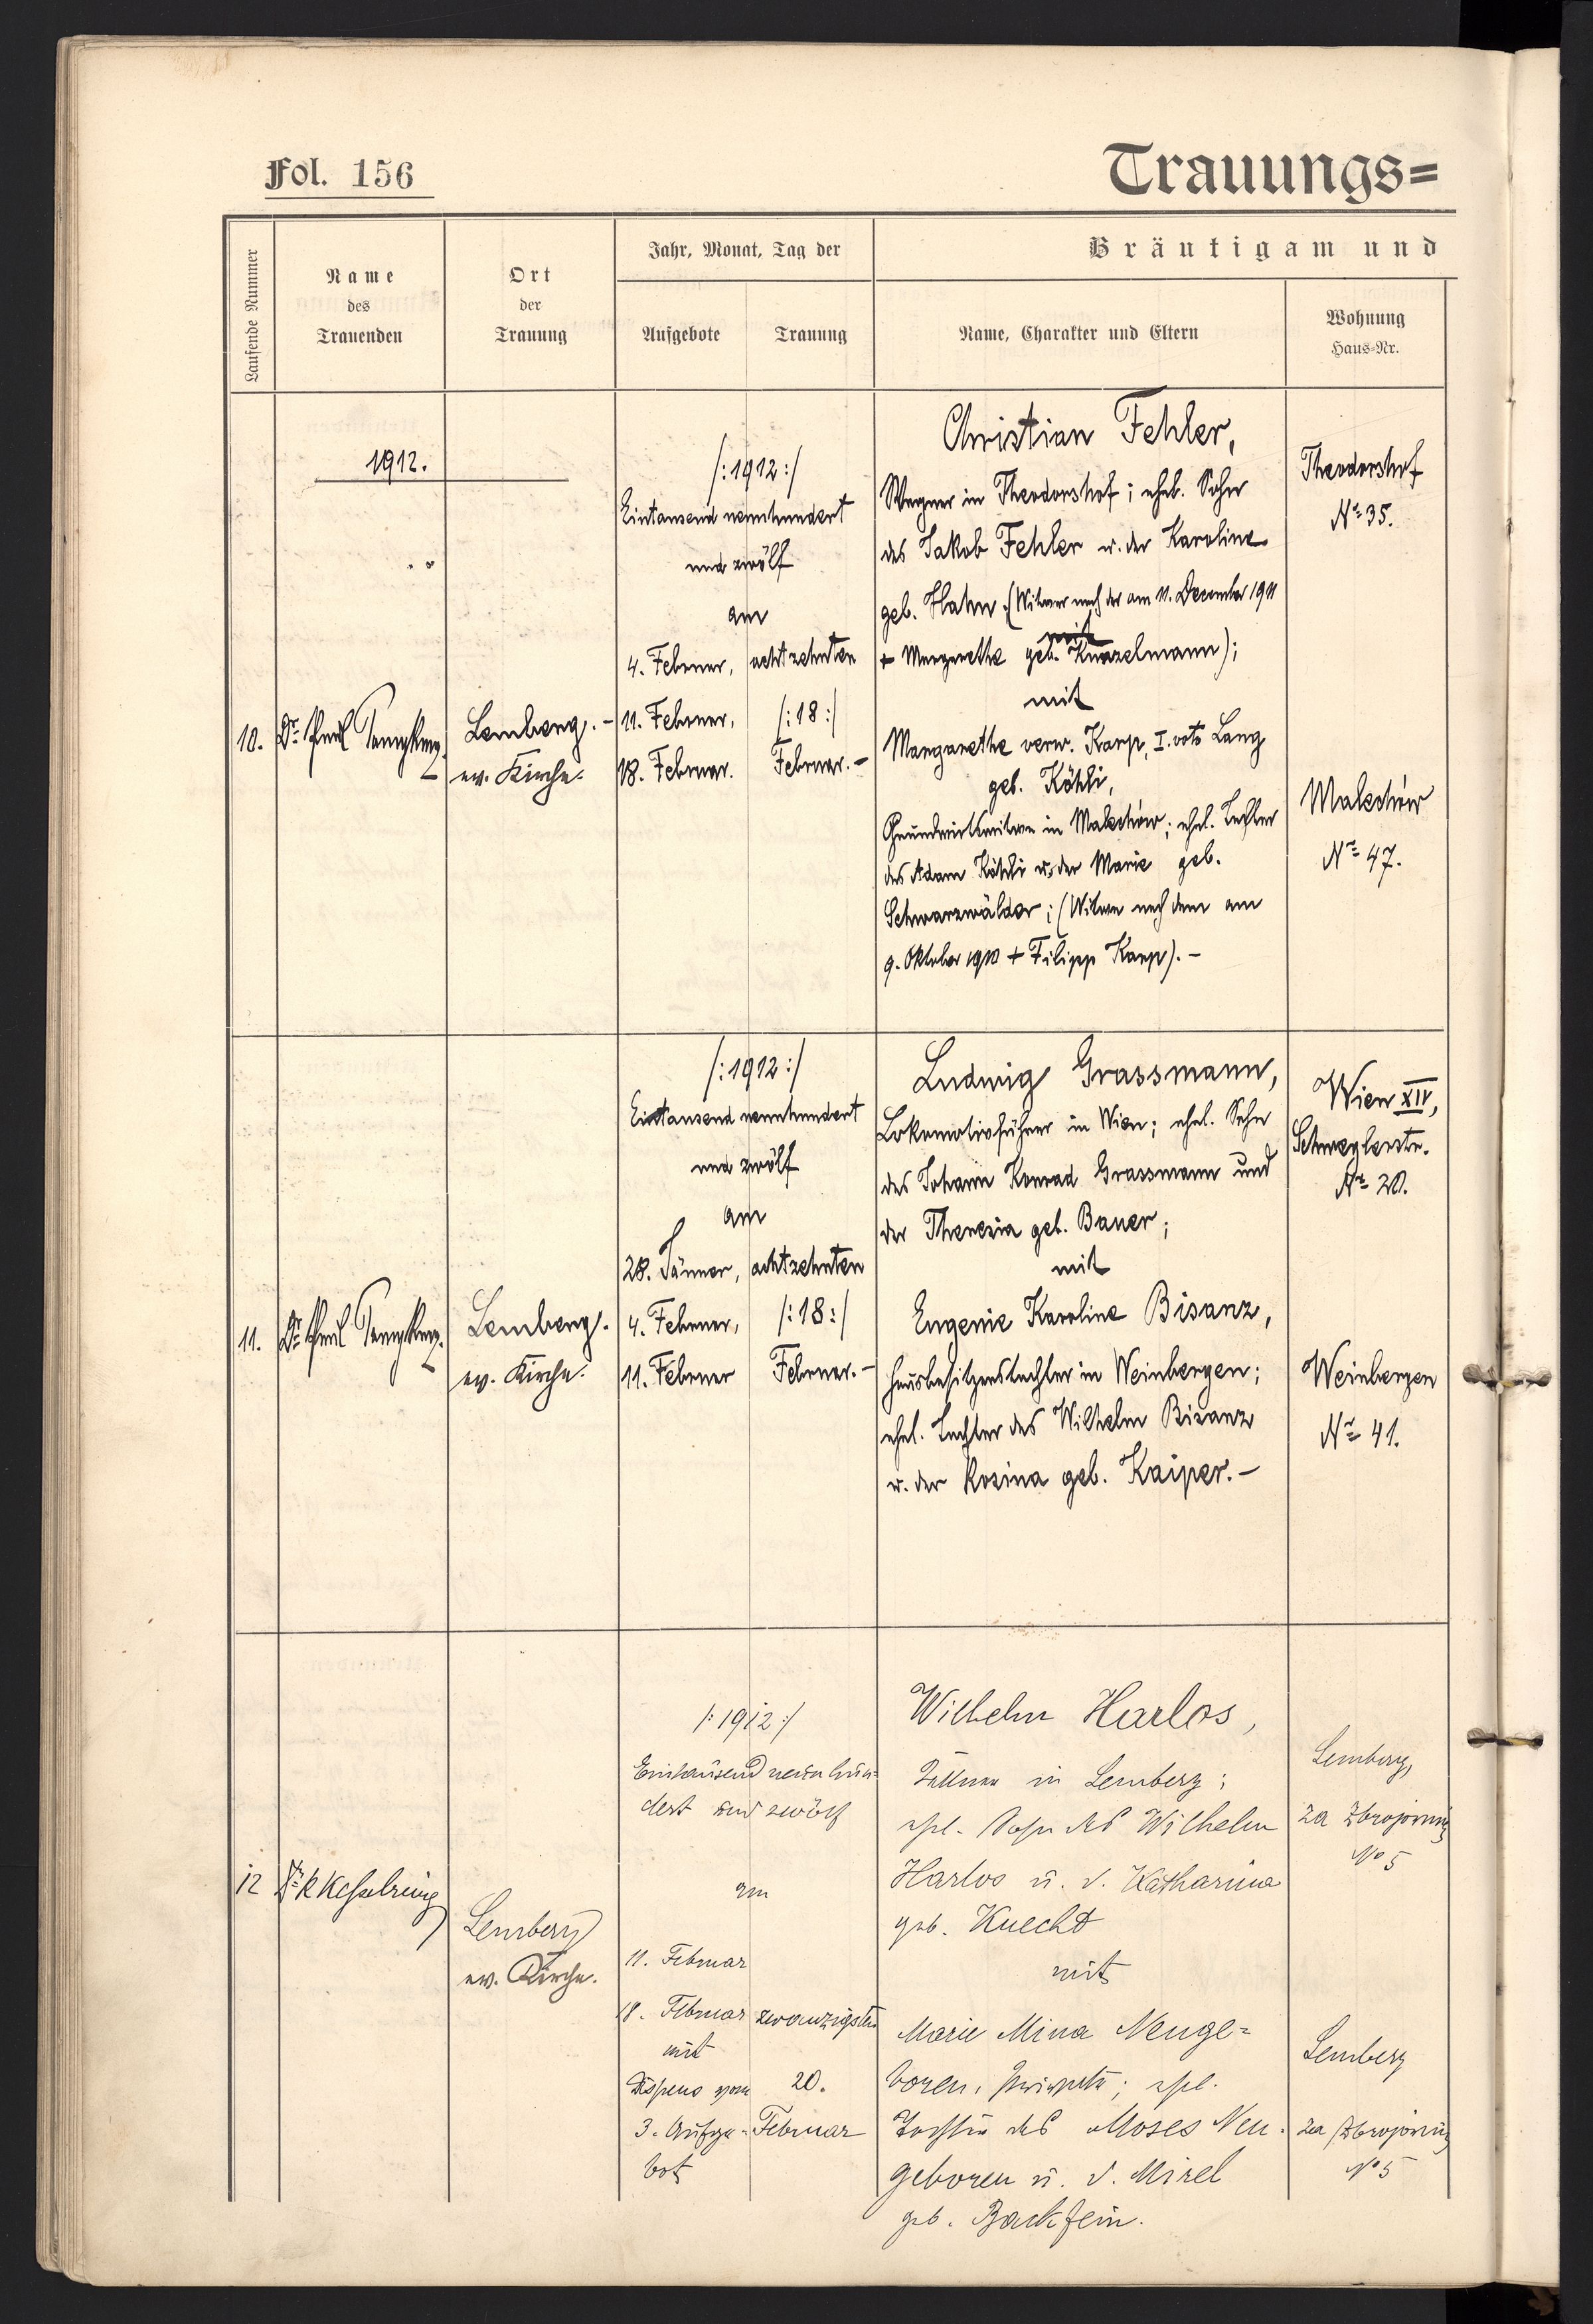 Fol. 156
Trauungs=
Laufende Nummer
Name
des
Trauenden
Ort
der
Trauung
Jahr, Monat, Tag der
Aufgebote
Trauung
Bräutigam und
Name, Charakter und Eltern
Wohnung
Haus-Nr.
1912.
10.
Dr.
Lemberg. -
ev. Kirche.
/:1912:/
Eintausend neunhundert
und zwölf
am
4. Februar,
11. Februar,
18. Februar.
achtzehnten
/:18:/
Februar. -
Christian Fehler,
Wagner in Theodorshof; ehel. Sohn
des Jakob Fehler u. der Karoline
geb. Hahn. (Witwer nach der am 11. December 1911
+ Margarethe geb. Kunzelmann);
mit
Margarethe verw. Karp, I. voto Lang
geb. Köhli,
Grundwirtswitwe in Malechów; ehel. Tochter
des Adam Köhli u. der Marie geb.
Schwarzwälder; (Witwe nach dem am
9. Oktober 1910 + Filipp Karp). -
Theodorshof
No 35.
Malechów
No 47.
11.
Dr.
Lemberg.
ev. Kirche.
/:1912:/
Eintausend neunhundert
und zwölf
am
28. Jänner,
4. Februar,
11. Februar
achtzehnten
/:18:/
Februar. -
Ludwig Grassmann,
Lokomotivführer in Wien; ehel. Sohn
des Johann Konrad Grassmann und
der Theresia geb. Bauer;
mit
Eugenie Karoline Bisanz,
Hausbesitzerstochter in Weinbergen;
ehel. Tochter des Wilhelm Bisanz
u. der Rosina geb. Kaiper. -
Wien XIV,
Schweglerstr.
No 20.
Weinbergen
No 41.
12
Dr. R Kesselring
Lemberg
ev. Kirche.
/:1912:/
Eintausend neunhun=
dert und zwölf
am
11. Februar
18. Februar
mit
Dispens vom
3. Aufge=
bot
zwanzigsten
20.
Februar
Wilhelm Harlos,
in Lemberg;
ehel. Sohn des Wilhelm
Harlos u. d. Katharina
geb. Knecht
mit
Marie Mina Neuge=
boren, Private; ehel.
Tochter des Moses Neu=
geboren u. d. Mirel
geb. Backfein.
Lemberg,
za Zbrojownią
No 5
Lemberg
za Zbrojownią
No 5